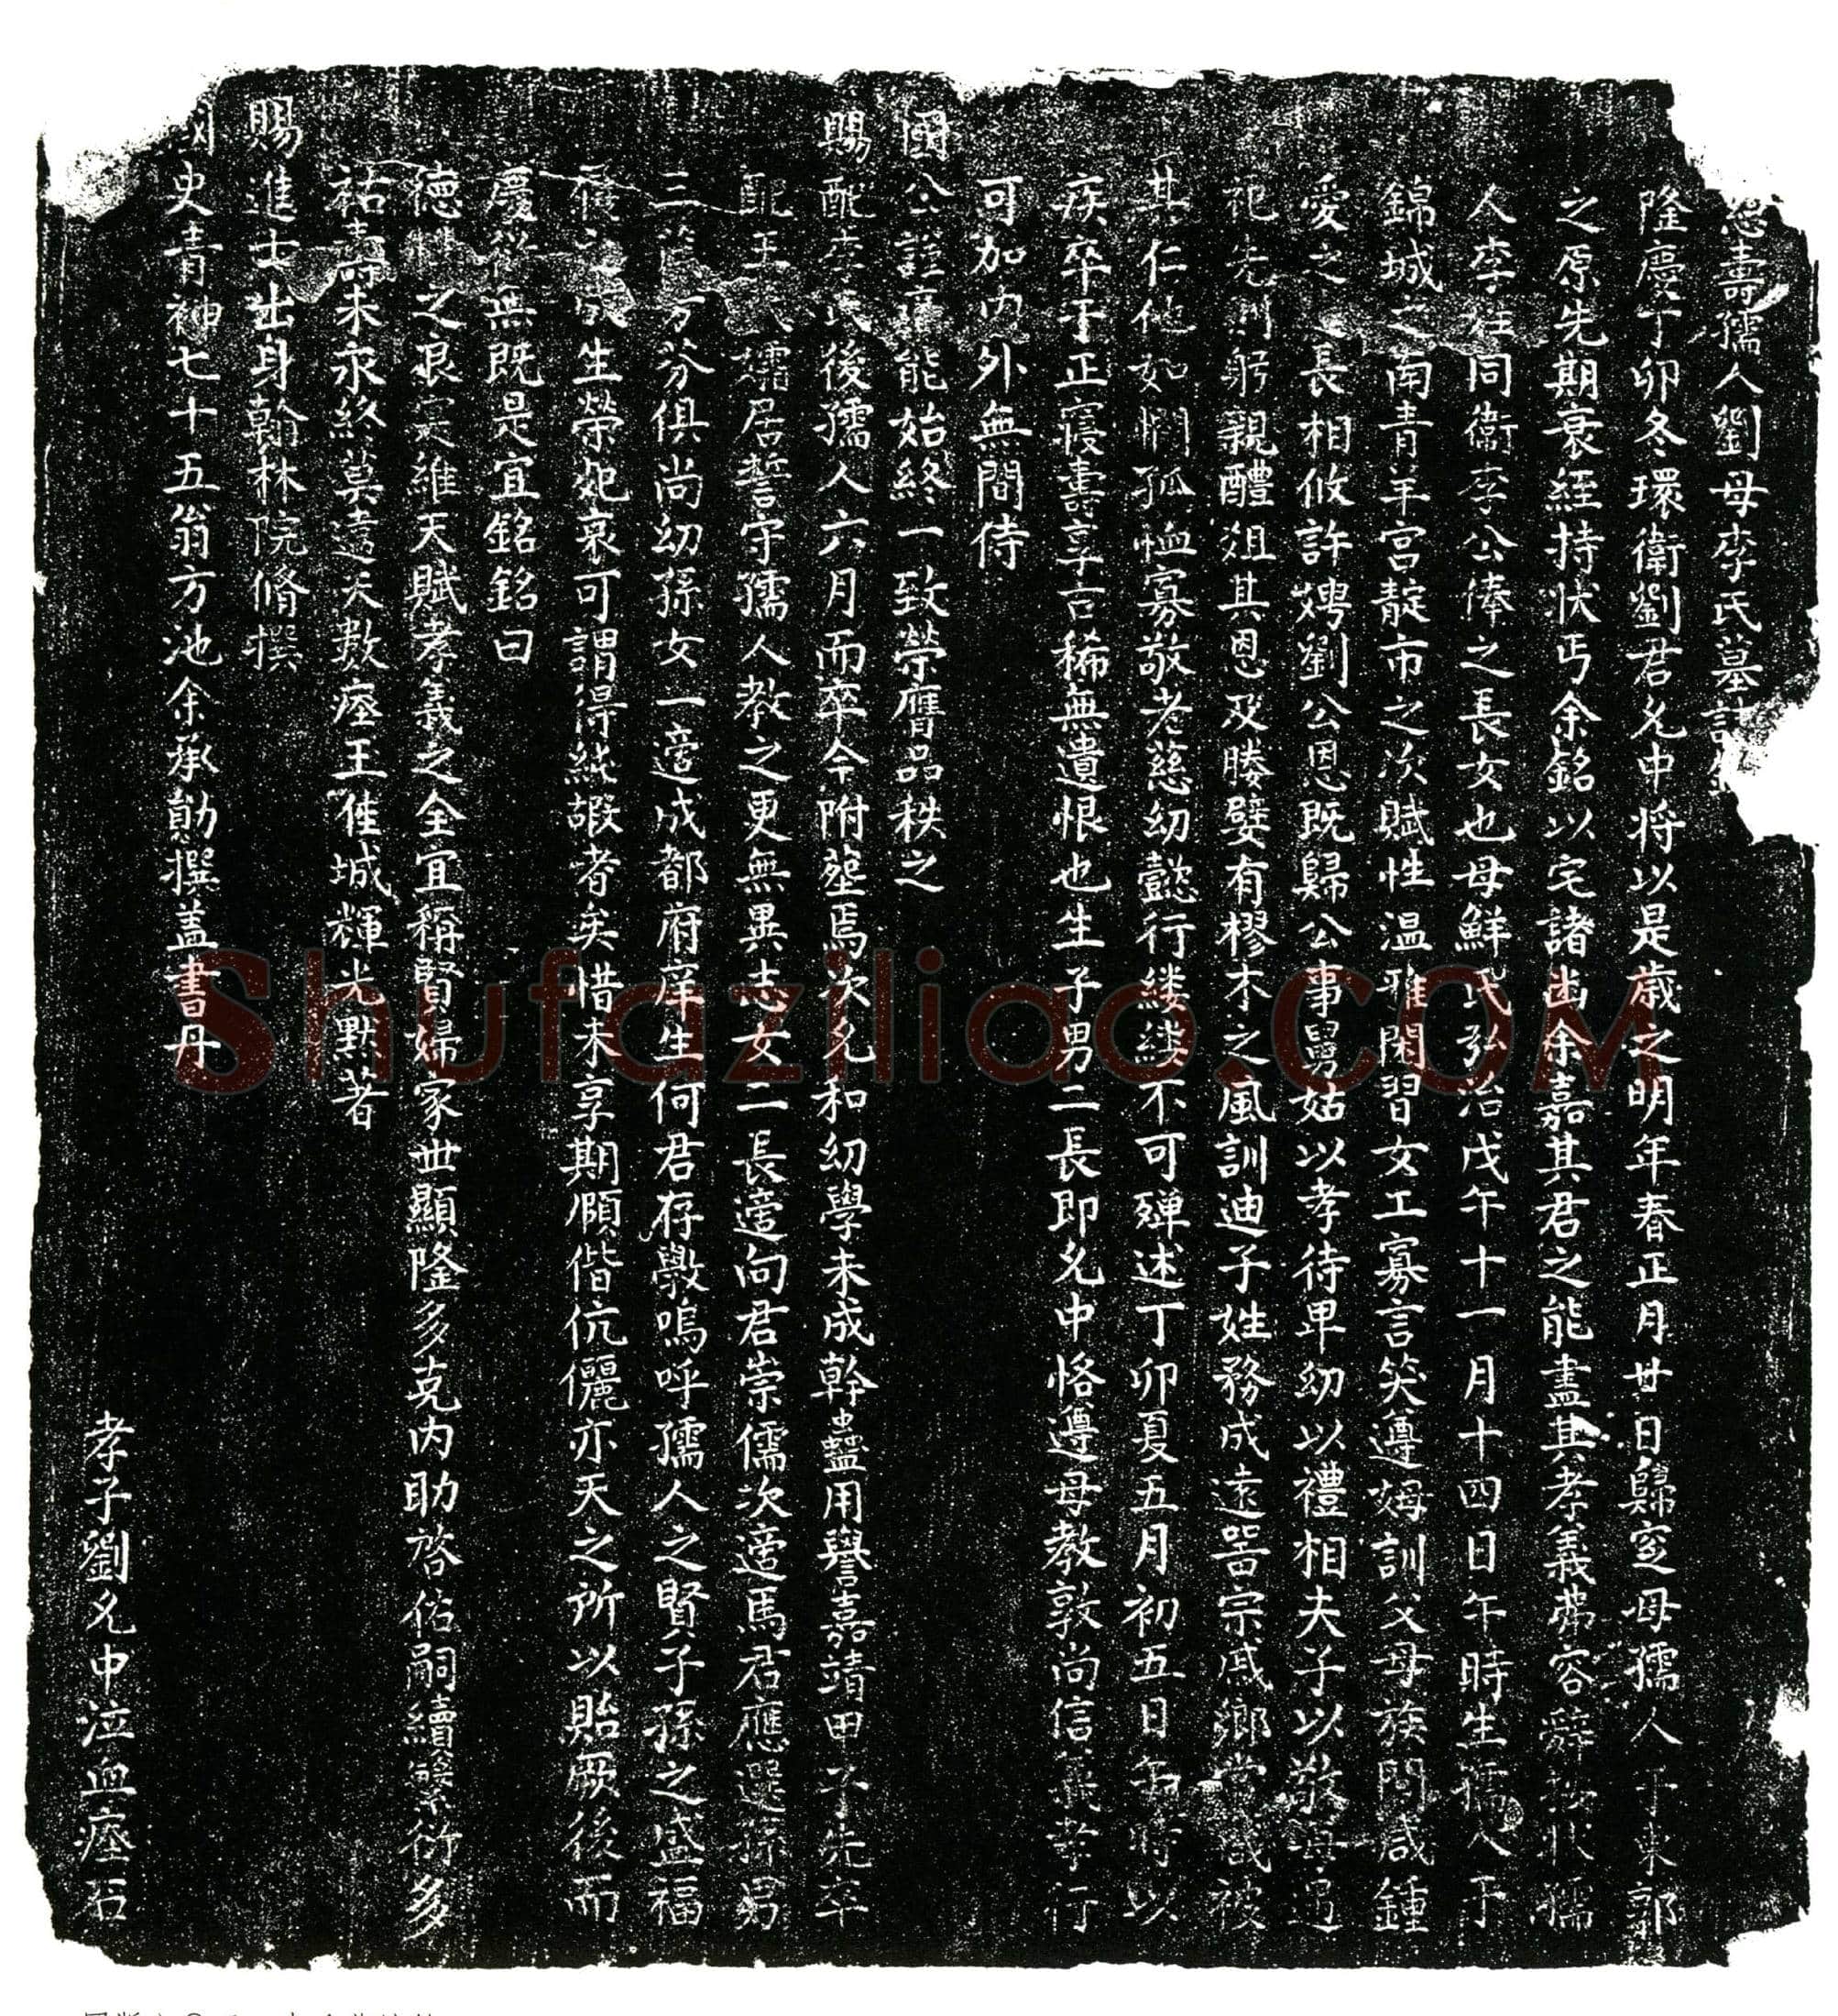 慈壽孺人劉母李氏墓誌
隆慶丁卯冬環衛劉君允中将以是歳之明年春正月廿日歸窆母孺人于東郭
之原先期衰絰持狀丐余銘以宅諸幽余嘉其君之能盡其孝義弗容辭按狀孺
人李姓同衛李公俸之長女也母鮮氏弘治戊午十一月十四日午時生孺人于
錦城之南青羊宮靛市之次賦性温雅閑習女工寡言笑遵姆訓父母族閭咸鍾
愛之長相攸許娉劉公恩既歸公事舅姑以孝待卑幼以禮相夫子以敬每追
祀先則躬親醴俎其恩及媵嬖有樛木之風訓迪子姓務成遠噐宗戚鄉黨咸被
其仁他如憫孤恤寡敬老慈幼懿行縷縷不可殫述丁卯夏五月初五日午時以
疾卒于正寢壽享古稀無遺恨也生子男二長即允中恪遵母教敦尚信義孝行
可加内外無間侍
國公 能始終一致榮膺品秩之
賜配李氏後孺人六月而卒今附塟焉次允和幼學未成幹蠱用譽嘉靖甲子先卒
配王氏孀居誓守孺人教之更無異志女二長適向君崇儒次適馬君應選孫男
三 万芬俱尚幼孫女一適成都府庠生何君存斆嗚呼孺人之賢子孫之盛福
生榮死哀可謂得純嘏者矣惜未享期頤偕伉儷亦天之所以貽厥後而
慶 無既是宜銘銘曰
德 之良寔維天賦孝義之全宜稱賢婦家世顯隆多克内助啓佑嗣續蕃衍多
祜壽未永終莫違天數瘞玉佳城輝光黙著
賜進士出身翰林院脩撰
國史青神七十五翁方池余承勛撰盖書丹
孝子劉允中泣血瘞石
Shufaziliao.COM